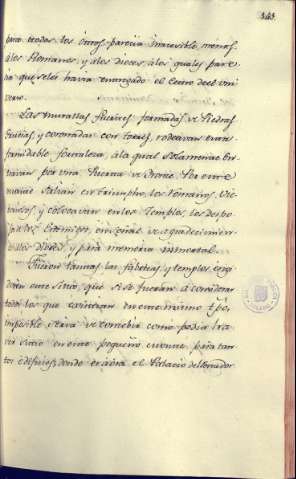 343
para todos los otros parecia inacesible menos
a los Romanos, y a los dioses, a los quales pare-
cia que se les havia entregado el Cetro de el Uni-
verso.
Las Murallas fuertes formadas de Piedras
y coronadas con torres, rodeavan esta
formidable fortaleza, a la qual solamente En-
travan por una Puerta de bronce. Por este
salian en triumpho los Romanos, Vic-
toriosos, y colocavan en los Templos los despo-
jos del Enemigo, en señal de agradecimien-
to a los dioses, y para memoria inmortal.
Fueron tantas las fabricas, y templos, erig-
idos en este sitio, que si se fueran a considerar
todos los que existieron en un mismo tpo,
imposible seria de concebir como podia ha-
ver sitio en este pequeño monte, para tan-
tos edificios, donde estaba el Palacio del Senador